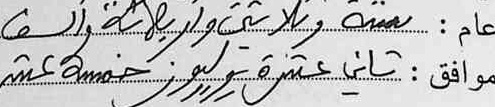 عام : ستة وثلاثين وأربعمائة وألف
موافق : ثاني عشرة يوليوز خمسة عشر